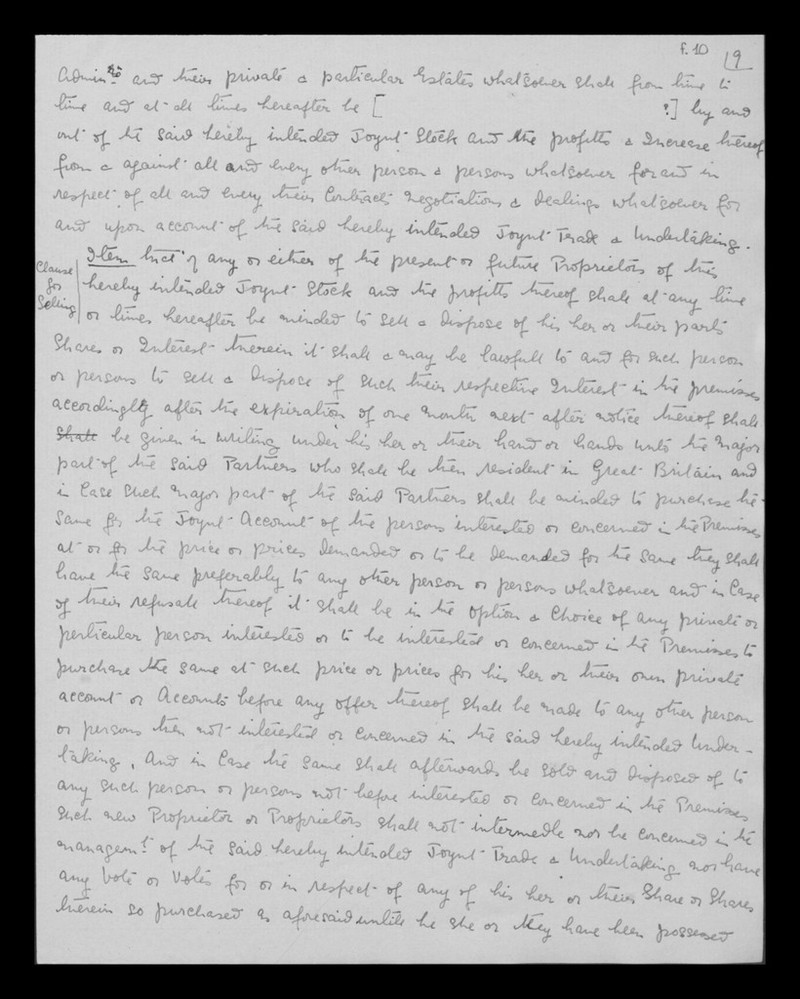 f.10
9
Admin.rs and their private & particular Estates whatsoever shall from time to
time and at all times hereafter be [ ?] by and
out of the said hereby intended Joynt Stock and the profitts & Increase thereof
from & against all and every other person & persons whatsoever for and in
respect of all and every their Contracts negotiations & dealings whatsoever for
and upon account of the said hereby intended Joynt Trade & Undertaking.
Item that if any or either of the present or future Proprietors of this
Clause
for
Selling
hereby intended Joynt Stock and the profitts thereof shall at any time
or times hereafter be minded to sell & dispose of his her or their parts
Shares or Interest therein it shall & may be lawfull to and for such person
or persons to sell & Dispose of such their respective Interest in the premisses
accordingly after the expiration of one month next after notice thereof shall
shall be given in writing under his her or their hand or hands unto the Major
part of the said Partners who shall be then resident in Great Britain and
in Case such Major part of the said Partners shall be minded to purchase the
same for the Joynt Account of the persons interested or concerned in the Premisses
at or for the price or prices demanded or to be demanded for the same they shall
have the same preferably to any other person or persons whatsoever and in Case
of their refusall thereof it shall be in the option & Choice of any private or
perticular person interested or to be interested or concerned in the Premisses to
purchase the same at such price or prices for his her or their own private
account or Accounts before any offer thereof shall be made to any other person
or persons then not interested or concerned in the said hereby intended Under-
taking, And in Case the same shall afterwards be sold and disposed of to
any such person or persons not before interested or concerned in the Premisses
such new Proprietor or Proprietors shall not intermedle nor be concerned in the
managem.t of the said hereby intended Joynt Trade & Undertaking nor have
any Vote or Votes for or in respect of any of his her or their Share or Shares
therein so purchased as aforesaid untill he she or they have been possessed